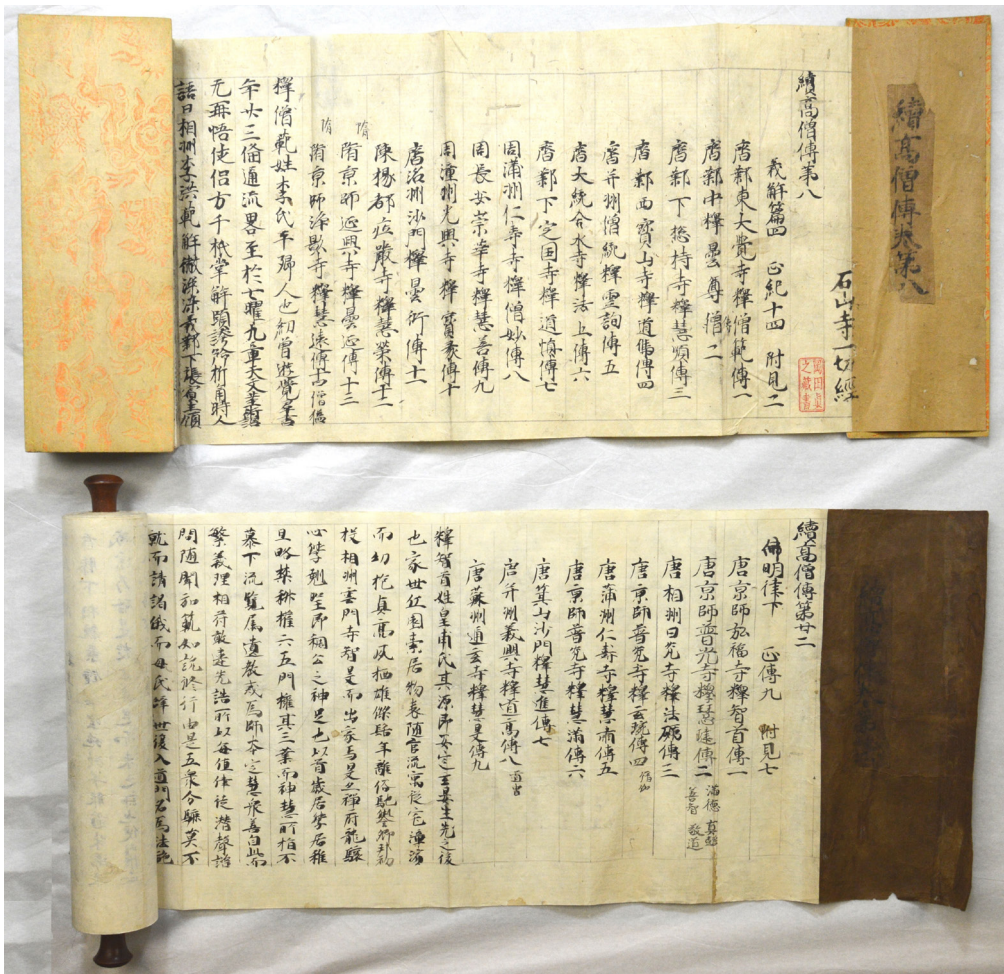 續高僧傳卷第八
石山寺一切經
之藏書
續高僧傳第八
義解篇四 正紀十四 附見二
齊鄴東大覺寺釋僧範傳一
齊鄴中釋曇尊傳二
齊鄴下揔持寺釋慧順傳三
齊鄴西寶山寺釋道憑傳四
齊并州僧統釋靈詢傳五
齊大統合水寺釋法上傳六
齊鄴下定国寺釋道慎傳七
周蒲州仁壽寺釋僧妙傳八
周長安崇華寺釋慧善傳九
周潼州光興寺釋寶彖傳十
齊洺州沙門釋曇衍傳十一
陳揚都莊嚴寺釋慧榮傳十二
隋
隋京師延興寺釋曇延傳十三
隋
隋京師淨影寺釋慧遠傳十四 僧猛
釋僧範姓李氏平鄉人也幼曾遊覽群書
年廿三備通流略至於七曜九章天文筮術諮
无再悟徒侶方千抵掌解頤誇矜折角時人
語曰相州李洪範解徹深深義鄴下張賓生領
續高僧傳第廿二
明律下 正傳九 附見七
唐京師弘福寺釋智首傳一
唐京師普光寺釋慧璡傳二 滿德 真懿 善智 敬道
唐相州日光寺釋法礪傳三
唐京師普光寺釋玄琬傳四 僧伽
唐蒲州仁壽寺釋慧甫傳五
唐京師普光寺釋慧滿傳六
唐箕山沙門釋慧進傳七
唐并州義興寺釋道亮傳八 道胄
唐蘇州通玄寺釋慧旻傳九
釋智首姓皇甫氏其源即安定玄晏先生之後
也家世丘園素居物表隨官流寓徙宅漳濱
而幼抱貞亮夙標雄傑髫年離俗馳譽鄉邦初
投相州雲門寺智旻而出家焉旻亦禪府龍驤
心學翹望即稠公之神足也以首歲居學居稚
且略禁科權示五門擁其三業而神慧所指不
慕下流覽屬遺教戒為師本定慧眾善自此而
繁義理相符敬遵先誥所以每值律徒潛聲諮
問隨聞弘範如說修行由是五眾分驅莫不
就而請諸儀而母氏辭世後入道門名為法施